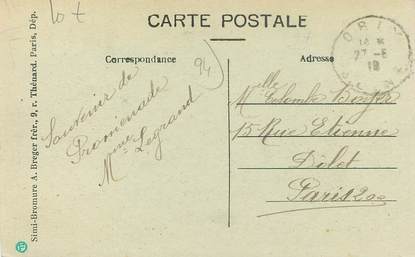 lot
CARTE POSTALE
Correspondance
Adresse
94
ORLY
27-5
19
SEINE
Souvenir de
Promenade
Mme Legrand
Melle Colombe
15 Rue Etienne
Dolet
Paris 20e
Simi-Bromure A. Breger frèr., 9, r. Thénard. Paris, Dép.